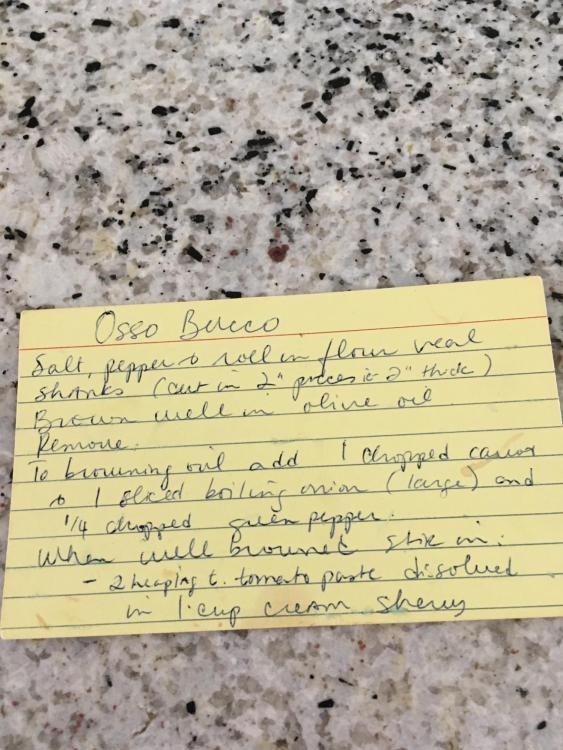 Osso Bucco
Salt, pepper & roll in flour veal
shanks (cut in 2" pieces ie 2" thick)
Brown well in olive oil
Remove.
To browning oil add 1 chopped carrot
& 1 sliced boiling onion (large) and
1/4 chopped green pepper.
When well browned stir in:
- 2 heaping t. tomato paste disolved
in 1 cup cream sherry